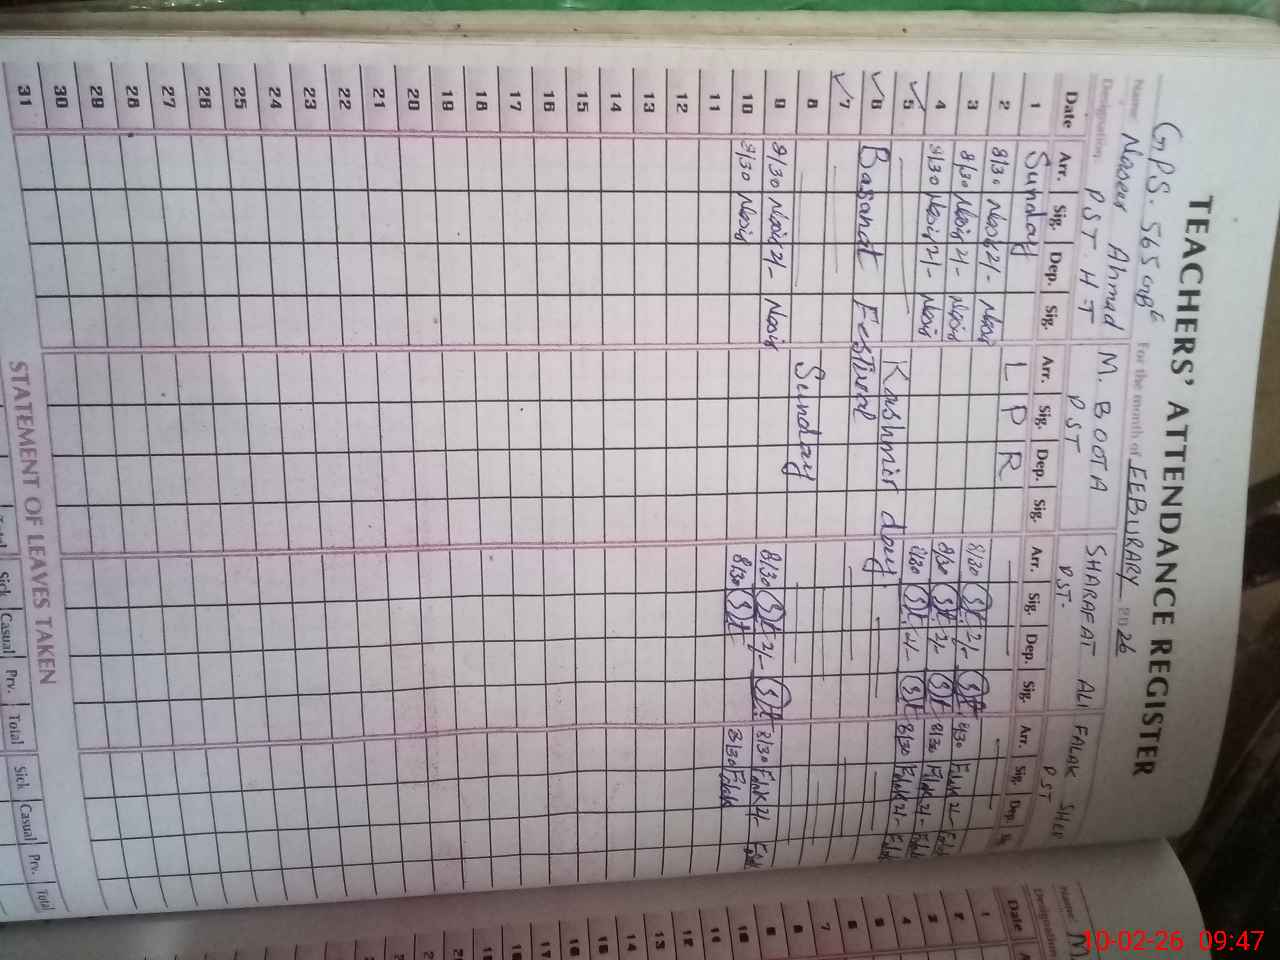 TEACHERS' ATTENDANCE REGISTER
G.P.S. 565 GB For the month of FEBURARY 2026
Name: Naseer Ahmad M. BOOTA SHARAFAT ALI FALAK SHER
Designation: PST. H-T PST PST. PST
Date Arr. Sig. Dep. Sig. Arr. Sig. Dep. Sig. Arr. Sig. Dep. Sig. Arr. Sig. Dep.
1 Sunday L P R
2 8/30 Nasir 2/- Nasir
3 8/30 Nasir 2/- Nasir 8/30 2/- 8/30 Falak 2/- Falak
4 8/30 Nasir 2/- Nasir 8/30 2/- 8/30 Falak 2/- Falak
5 Kashmir day 8/30 2/- 8/30 Falak 2/- Falak
6 Basanat Festival
7
8 Sunday
9 8/30 Nasir 2/- Nasir 8/30 2/- 8/30 Falak 2/- Falak
10 8/30 Nasir 8/30 8/30 Falak
11
12
13
14
15
16
17
18
19
20
21
22
23
24
25
26
27
28
29
30
31
STATEMENT OF LEAVES TAKEN
Total Sick Casual Prv. Total Sick Casual Prv. Total
Name: M
Designation
Date
1
2
3
4
5
6
7
8
9
10
11
12
13
14
15
16
17
18
19
20
21
10-02-26 09:47